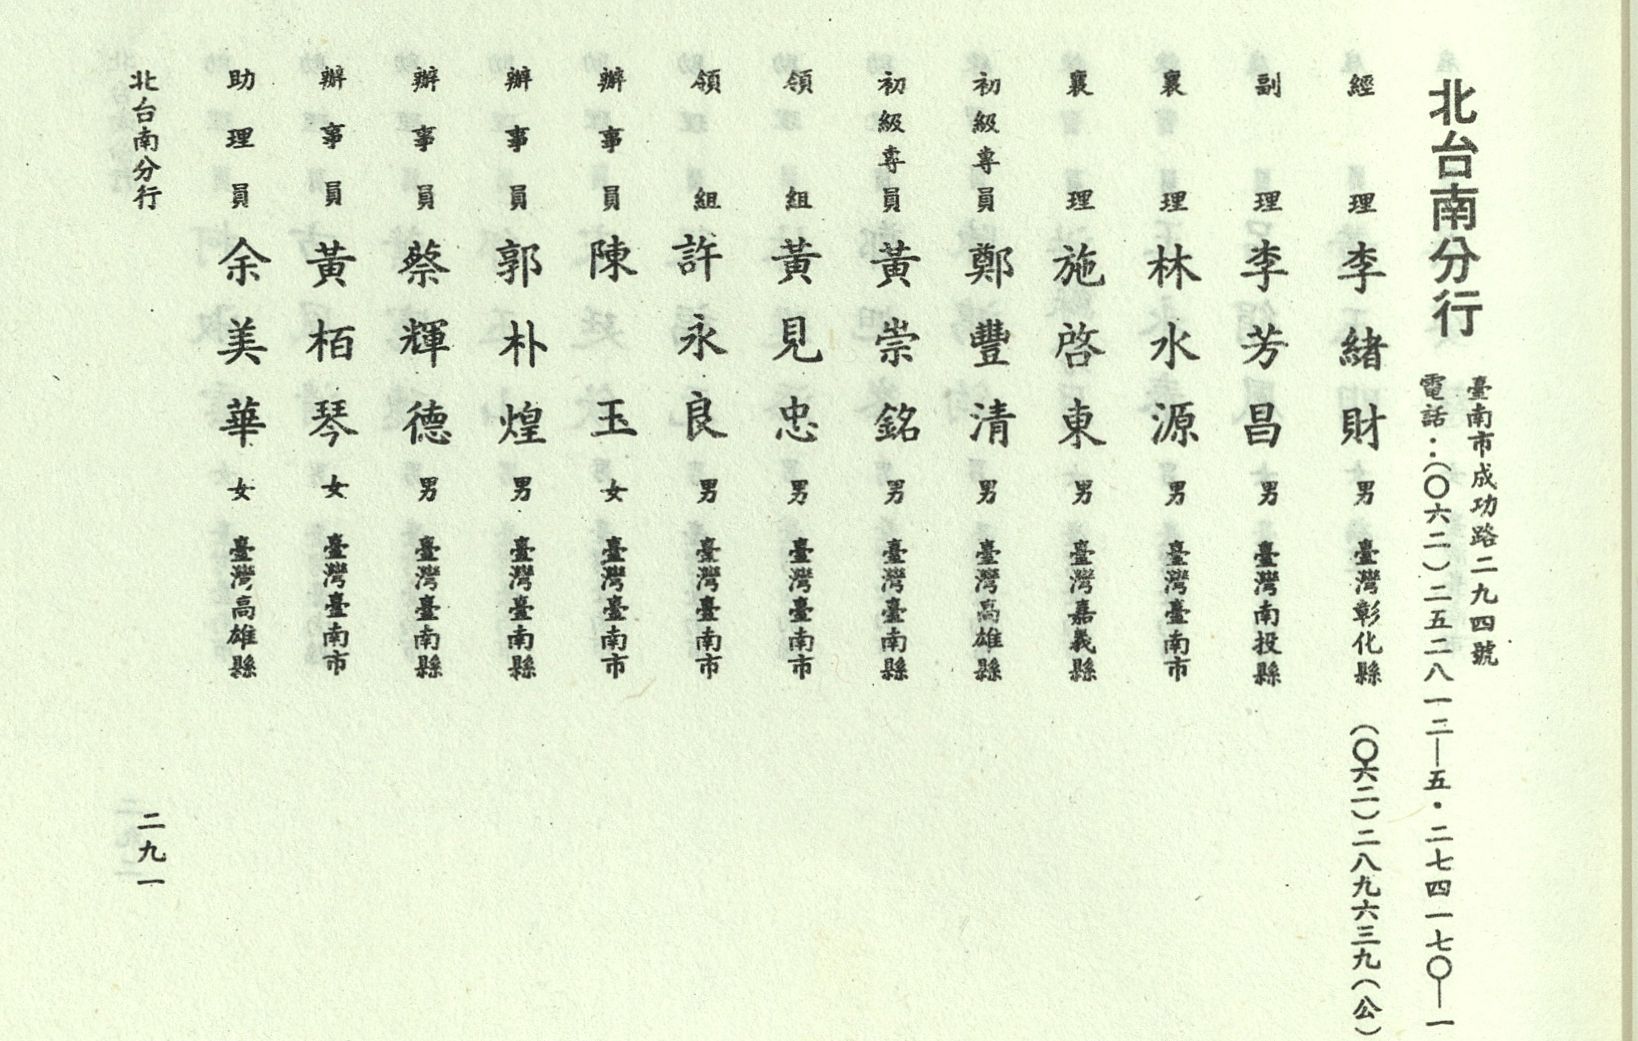 北台南分行
臺南市成功路二九四號
電話：(〇六二)二五二八一二—五・二七四一七〇—一
經理 李緒財 男 臺灣彰化縣 (〇六二)二八九六三九(公)
副理 李芳昌 男 臺灣南投縣
襄理 林水源 男 臺灣臺南市
襄理 施啓東 男 臺灣嘉義縣
初級專員 鄭豐清 男 臺灣高雄縣
初級專員 黃崇銘 男 臺灣臺南縣
領組 黃見忠 男 臺灣臺南市
領組 許永良 男 臺灣臺南市
辦事員 陳玉 女 臺灣臺南市
辦事員 郭朴煌 男 臺灣臺南縣
辦事員 蔡輝德 男 臺灣臺南縣
辦事員 黃栢琴 女 臺灣臺南市
助理員 余美華 女 臺灣高雄縣
北台南分行
二九一